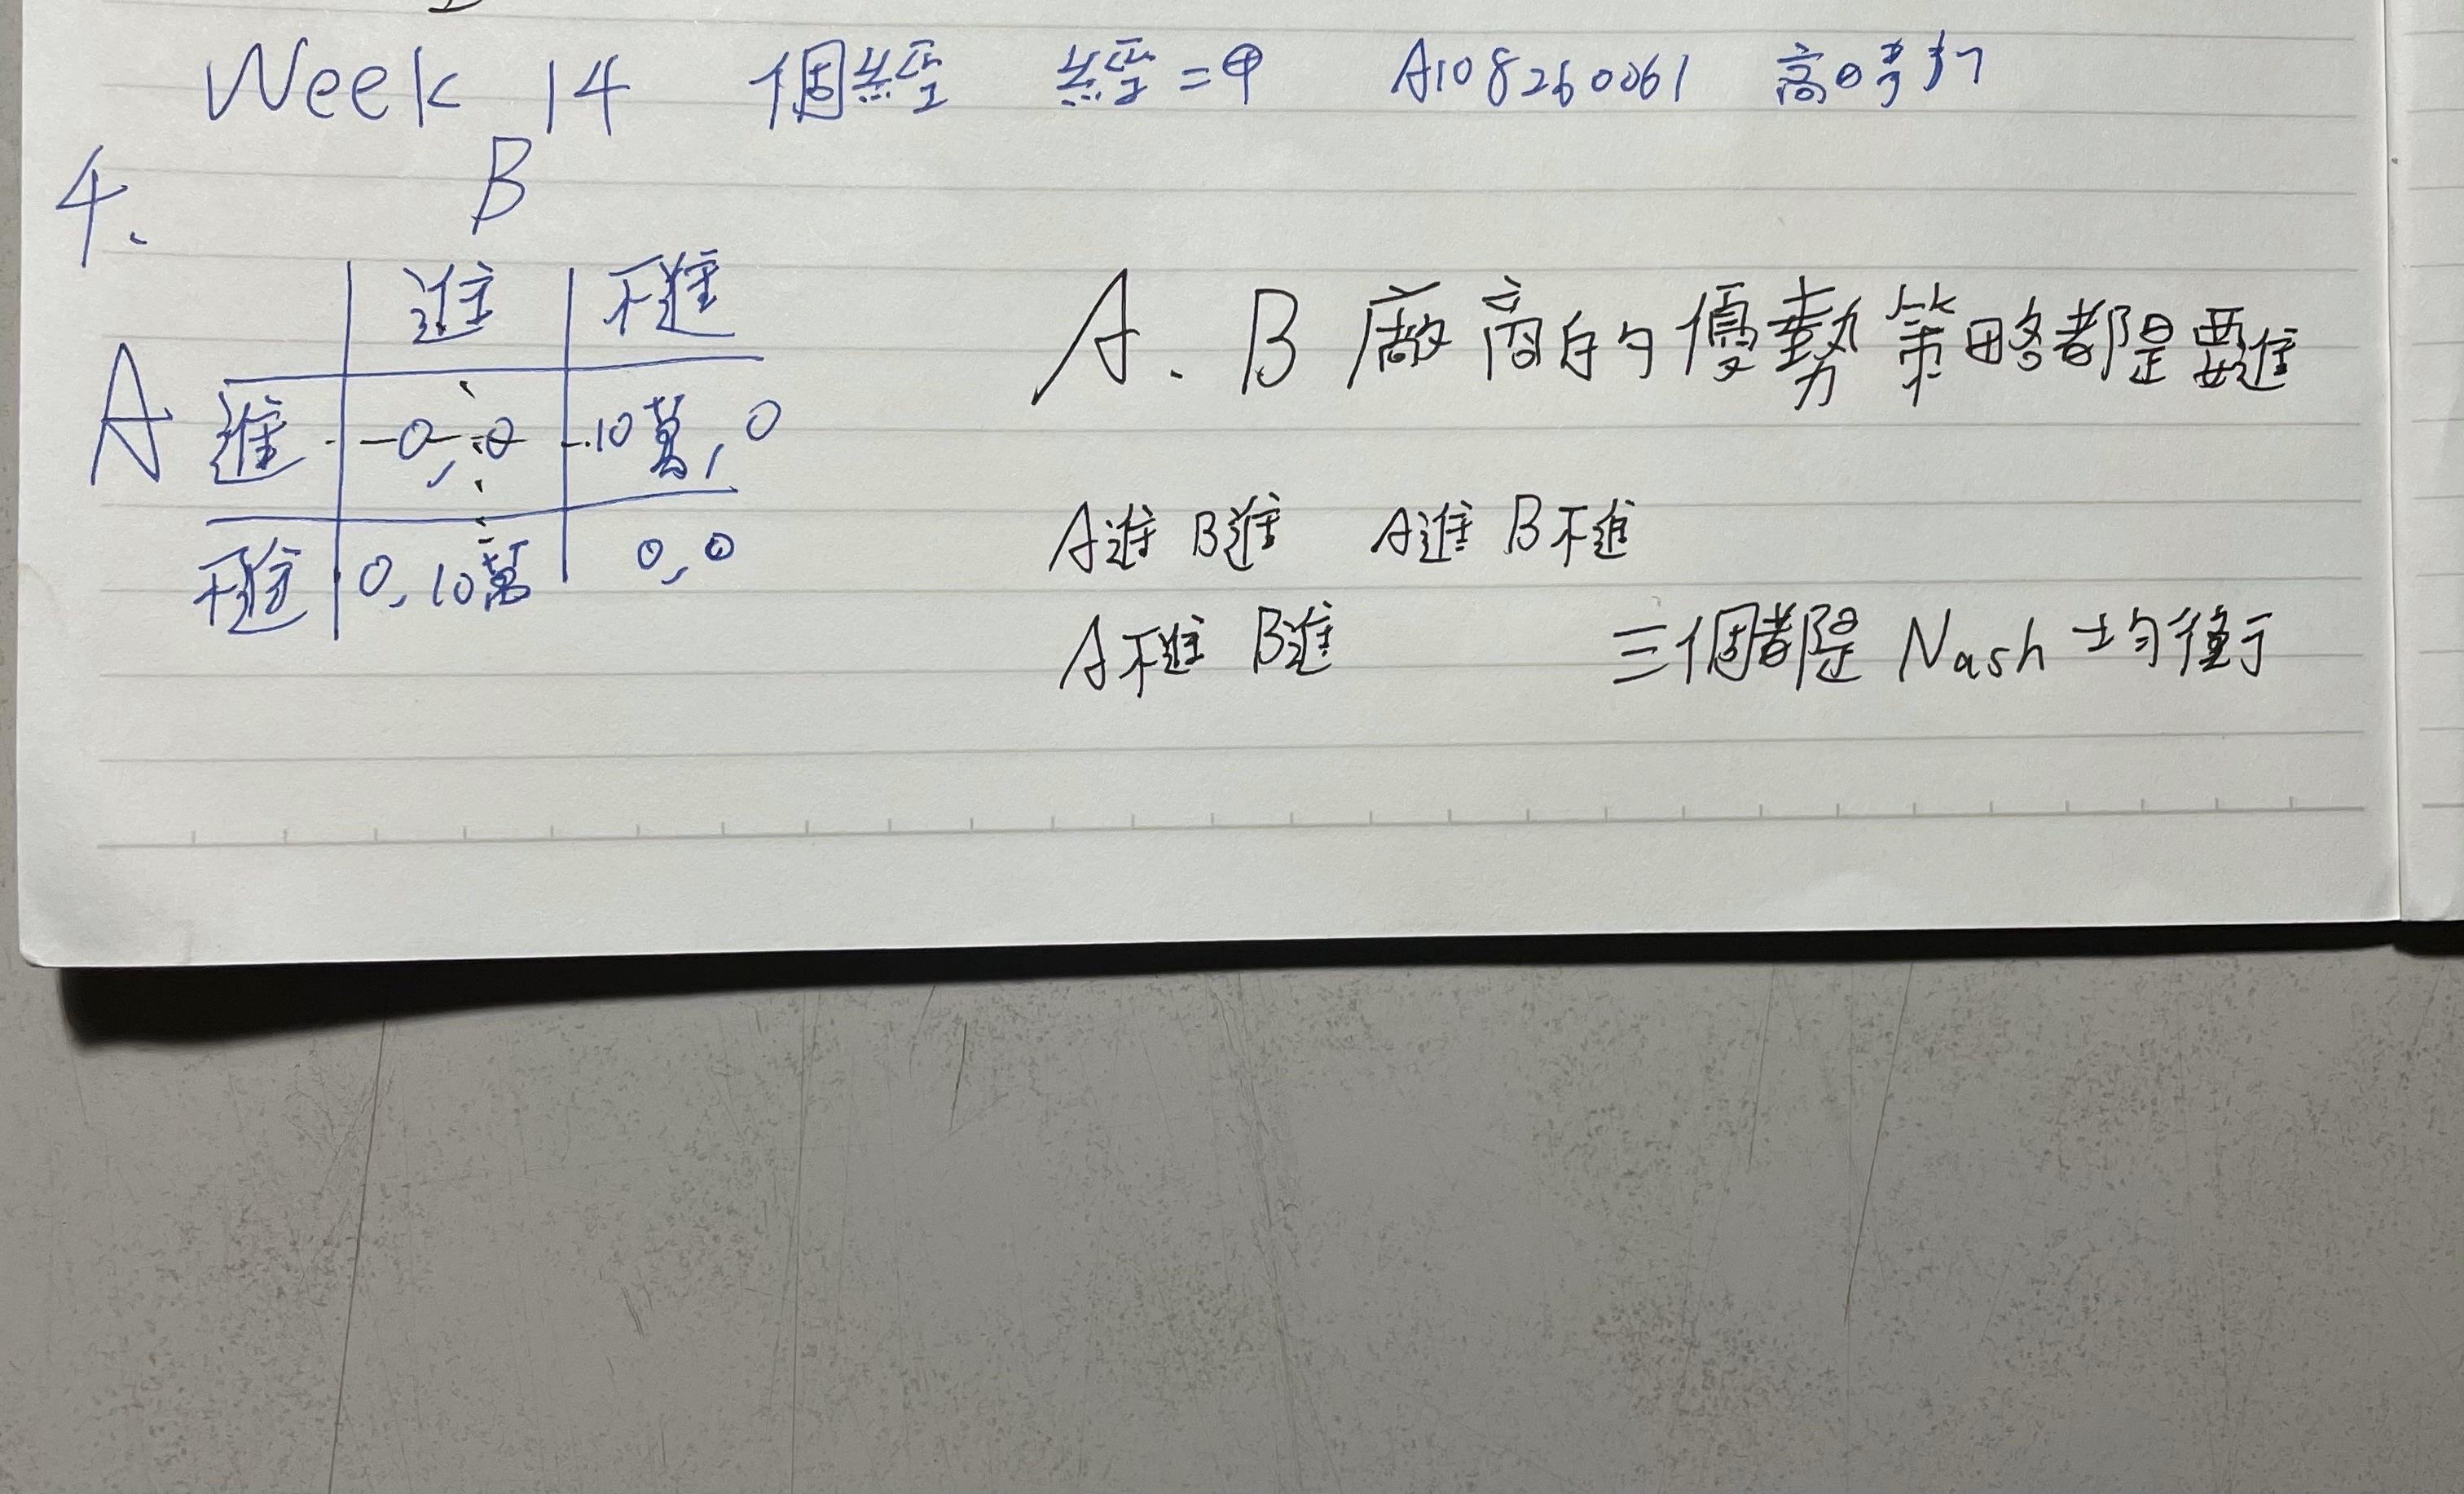 Week 14 個經 經二甲 A108260061 高
4.
B
進 不進
A 進 0, 0 10萬, 0
不進 0, 10萬 0, 0
A、B 廠商的優勢策略都是要進
A進 B進 A進 B不進
A不進 B進 三個都是 Nash 均衡